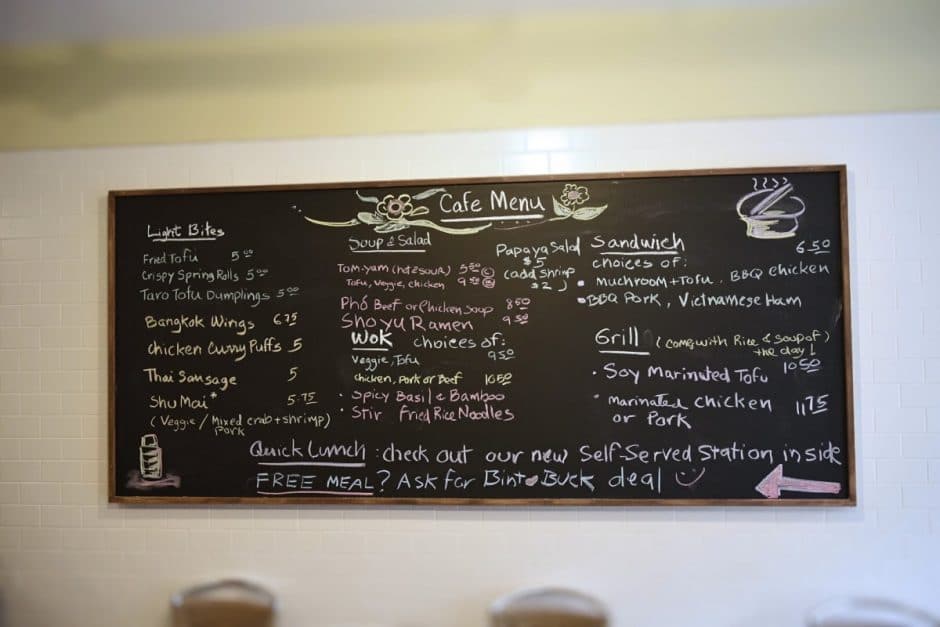 Cafe Menu
Light Bites
Fried Tofu 5.00
Crispy Spring Rolls 5.00
Taro Tofu Dumplings 5.00
Bangkok Wings 6.75
Chicken Curry Puffs 5
Thai Sausage 5
Shu Mai* 5.75
(Veggie / Mixed crab + shrimp)
Pork
Soup & Salad
Tom-yam (hot & sour) 5.50
Tofu, Veggie, chicken 9.50
Phó Beef or Chicken Soup 8.50
Shoyu Ramen 9.50
Wok choices of:
Veggie, Tofu 9.50
chicken, Pork or Beef 10.50
• Spicy Basil & Bamboo
• Stir Fried Rice Noodles
Papaya Salad
$5
(add shrimp
$2)
Sandwich 6.50
choices of:
• muchroom + Tofu, BBQ chicken
• BBQ Pork, Vietnamese Ham
Grill (come with Rice & soup of)
the day!
• Soy Marinated Tofu 10.50
• marinated chicken
or Pork 11.75
Quick Lunch : check out our new Self-Served Station inside
FREE MEAL? Ask for Bint Buck deal